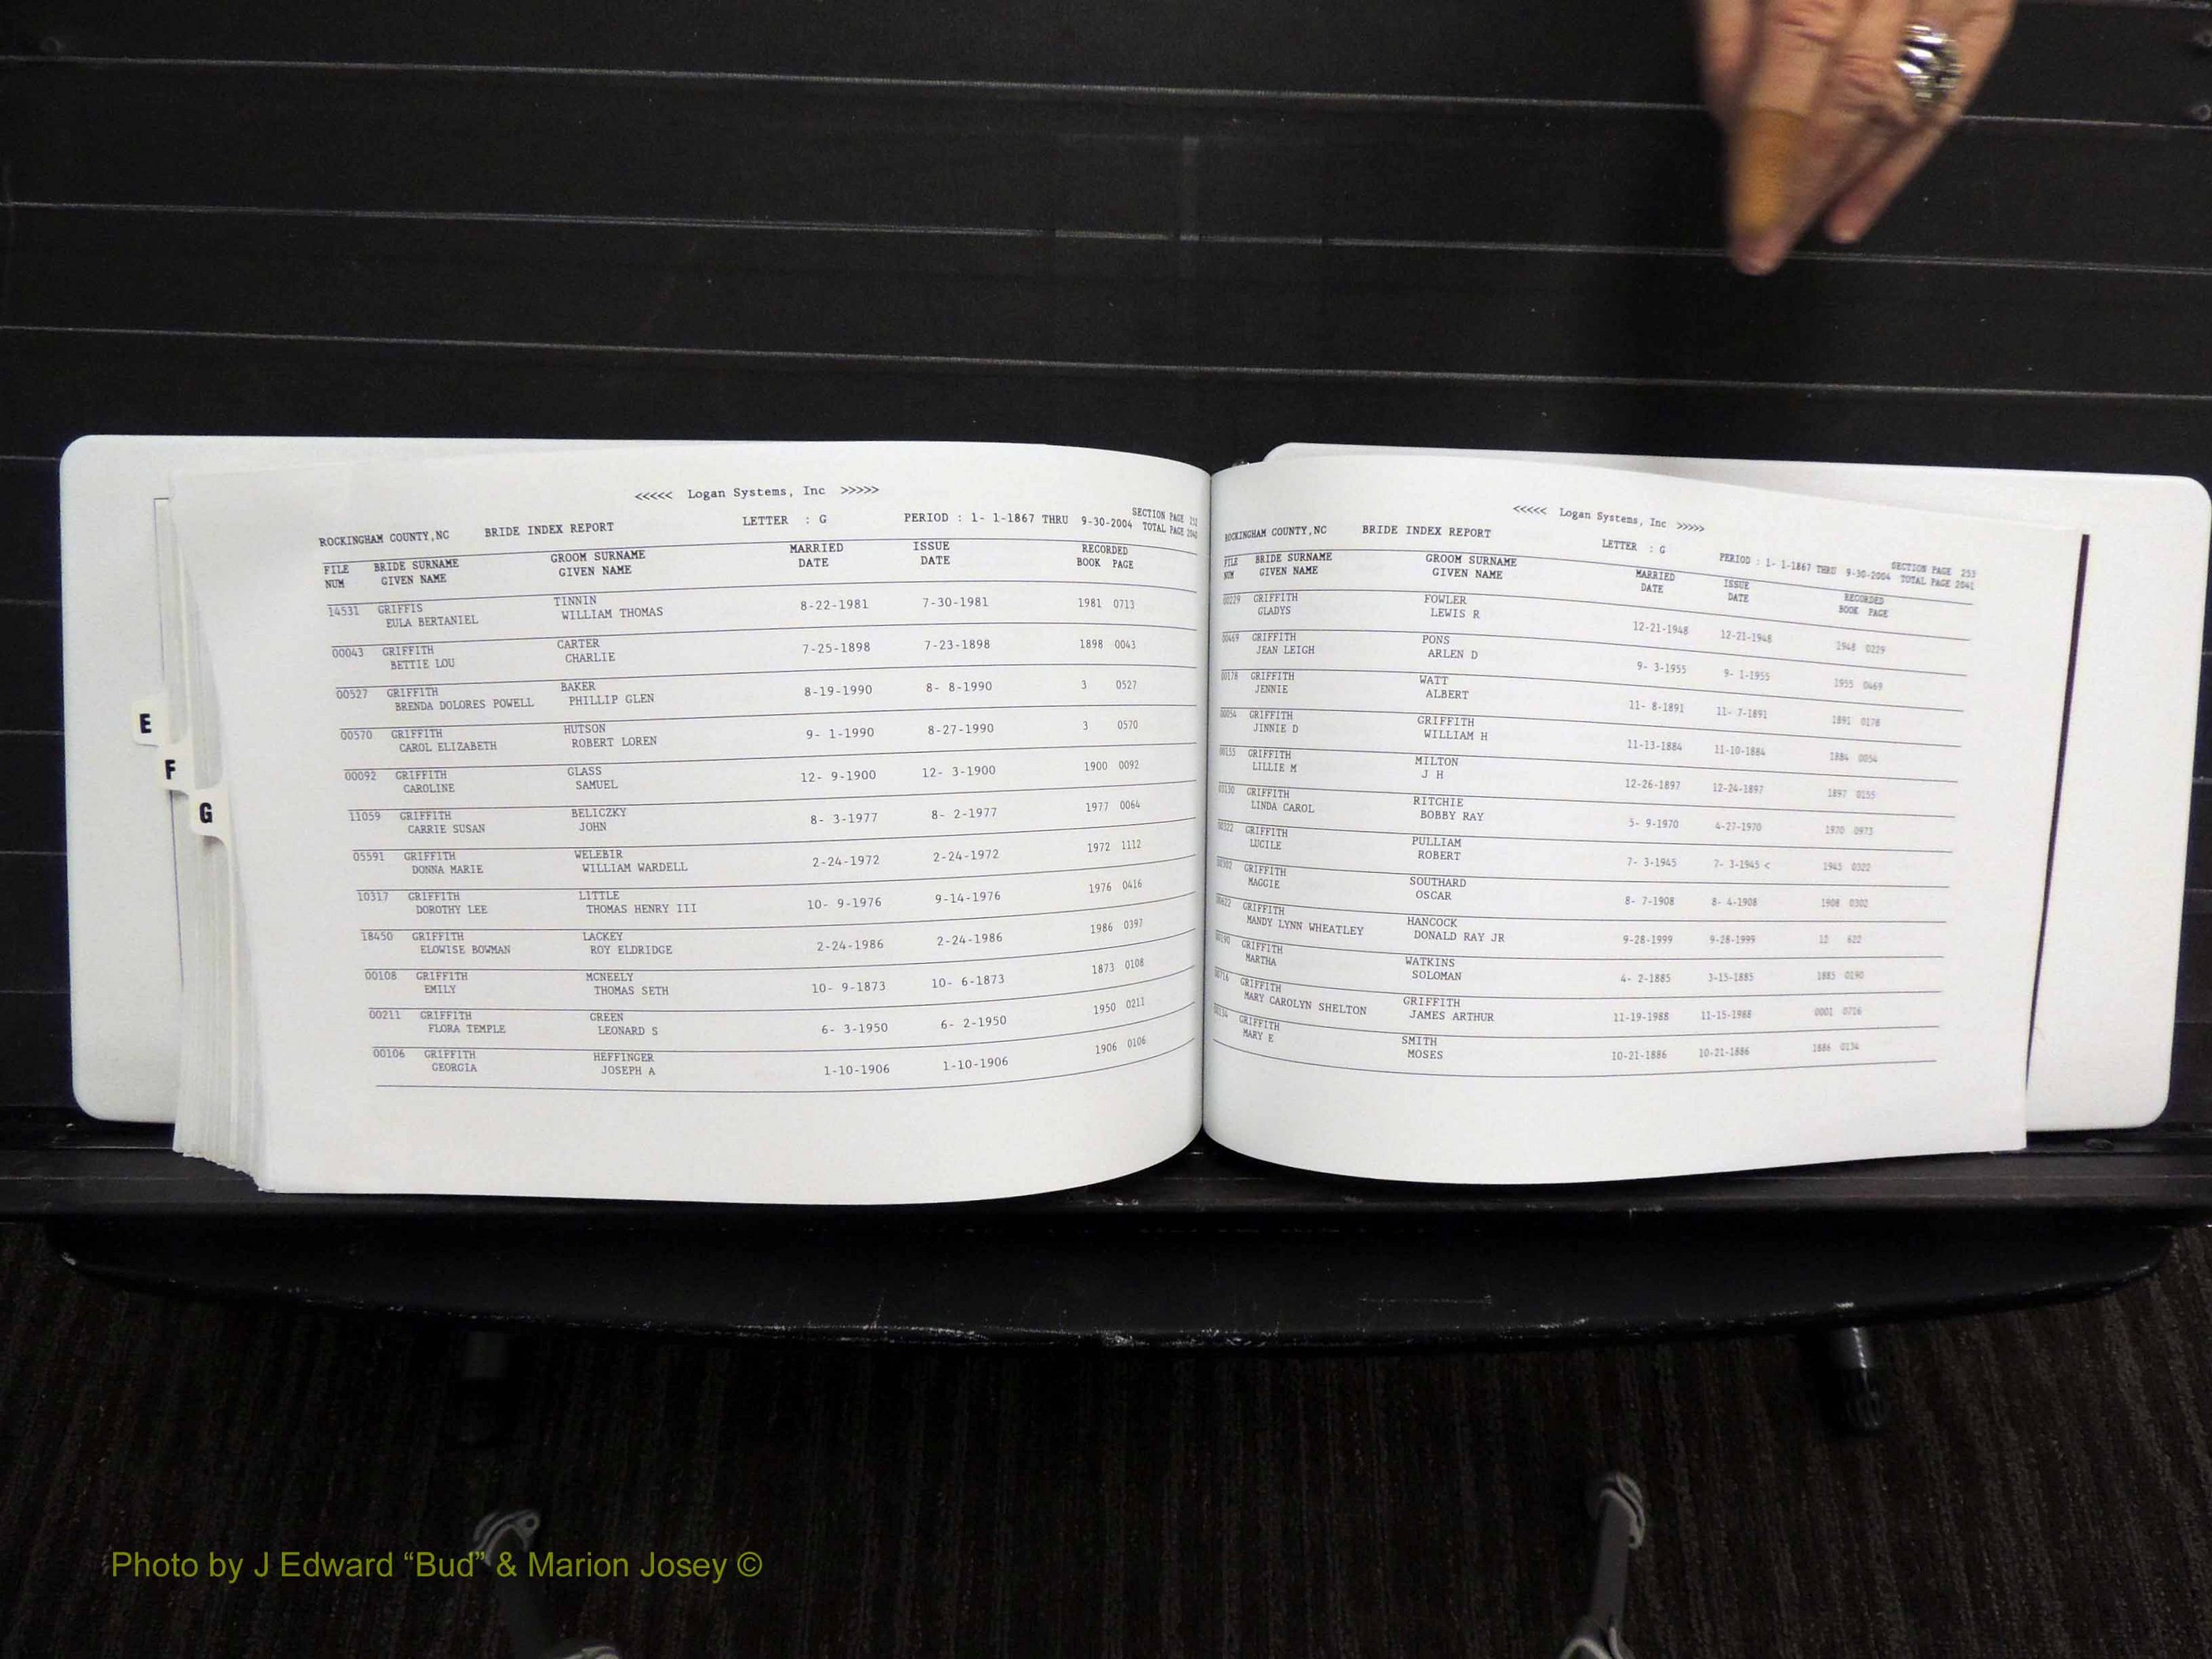 <<<<< Logan Systems, Inc >>>>>
ROCKINGHAM COUNTY,NC BRIDE INDEX REPORT LETTER : G PERIOD : 1- 1-1867 THRU 9-30-2004 SECTION PAGE
TOTAL PAGE
FILE BRIDE SURNAME GROOM SURNAME MARRIED ISSUE RECORDED
NUM GIVEN NAME GIVEN NAME DATE DATE BOOK PAGE
14531 GRIFFIS TINNIN 8-22-1981 7-30-1981 1981 0713
EULA BERTANIEL WILLIAM THOMAS
00043 GRIFFITH CARTER 7-25-1898 7-23-1898 1898 0043
BETTIE LOU CHARLIE
00527 GRIFFITH BAKER 8-19-1990 8- 8-1990 3 0527
BRENDA DOLORES POWELL PHILLIP GLEN
00570 GRIFFITH HUTSON 9- 1-1990 8-27-1990 3 0570
CAROL ELIZABETH ROBERT LOREN
00092 GRIFFITH GLASS 12- 9-1900 12- 3-1900 1900 0092
CAROLINE SAMUEL
11059 GRIFFITH BELICZKY 8- 3-1977 8- 2-1977 1977 0064
CARRIE SUSAN JOHN
05591 GRIFFITH WELEBIR 2-24-1972 2-24-1972 1972 1112
DONNA MARIE WILLIAM WARDELL
10317 GRIFFITH LITTLE 10- 9-1976 9-14-1976 1976 0416
DOROTHY LEE THOMAS HENRY III
18450 GRIFFITH LACKEY 2-24-1986 2-24-1986 1986 0397
ELOWISE BOWMAN ROY ELDRIDGE
00108 GRIFFITH MCNEELY 10- 9-1873 10- 6-1873 1873 0108
EMILY THOMAS SETH
00211 GRIFFITH GREEN 6- 3-1950 6- 2-1950 1950 0211
FLORA TEMPLE LEONARD S
00106 GRIFFITH HEFFINGER 1-10-1906 1-10-1906 1906 0106
GEORGIA JOSEPH A
E
F
G
<<<<< Logan Systems, Inc >>>>>
ROCKINGHAM COUNTY,NC BRIDE INDEX REPORT LETTER : G PERIOD : 1- 1-1867 THRU 9-30-2004 SECTION PAGE 253
TOTAL PAGE 2041
FILE BRIDE SURNAME GROOM SURNAME MARRIED ISSUE RECORDED
NUM GIVEN NAME GIVEN NAME DATE DATE BOOK PAGE
00229 GRIFFITH FOWLER 12-21-1948 12-21-1948 1948 0229
GLADYS LEWIS R
00469 GRIFFITH PONS 9- 3-1955 9- 1-1955 1955 0469
JEAN LEIGH ARLEN D
00178 GRIFFITH WATT 11- 8-1891 11- 7-1891 1891 0178
JENNIE ALBERT
00054 GRIFFITH GRIFFITH 11-13-1884 11-10-1884 1884 0054
JINNIE D WILLIAM H
00155 GRIFFITH MILTON 12-26-1897 12-24-1897 1897 0155
LILLIE M J H
GRIFFITH RITCHIE 5- 9-1970 4-27-1970 1970 0973
LINDA CAROL BOBBY RAY
00322 GRIFFITH PULLIAM 7- 3-1945 7- 3-1945 < 1945 0322
LUCILE ROBERT
00302 GRIFFITH SOUTHARD 8- 7-1908 8- 4-1908 1908 0302
MAGGIE OSCAR
00622 GRIFFITH HANCOCK 9-28-1999 9-28-1999 12 622
MANDY LYNN WHEATLEY DONALD RAY JR
00190 GRIFFITH WATKINS 4- 2-1885 3-15-1885 1885 0190
MARTHA SOLOMAN
00716 GRIFFITH GRIFFITH 11-19-1988 11-15-1988 0001 0716
MARY CAROLYN SHELTON JAMES ARTHUR
00134 GRIFFITH SMITH 10-21-1886 10-21-1886 1886 0134
MARY E MOSES
Photo by J Edward “Bud” & Marion Josey ©